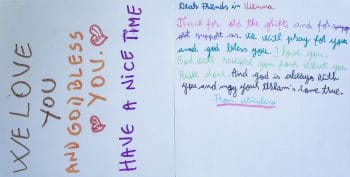 WE LOVE
YOU
AND GOD BLESS
YOU.
HAVE A NICE TIME
Dear Friends in Vienna
Thank for all the gifts and for supp
ort support us. We will pray for you
and god bless you. I love you.
God will reward you for what you
have done. And god is always with
you and may your dream's come true.
From